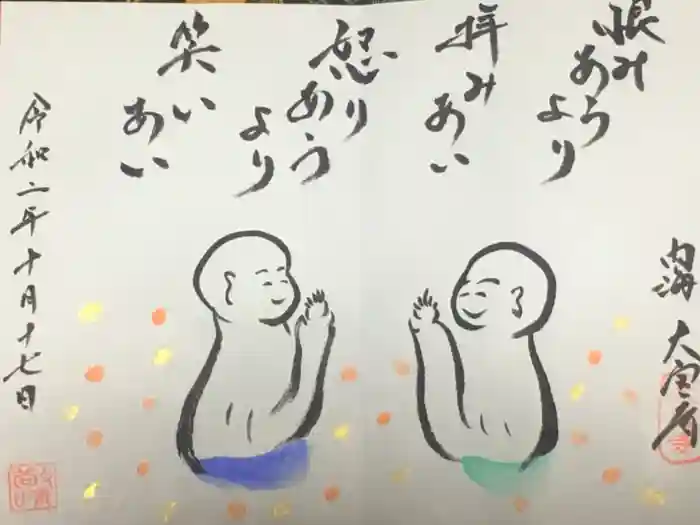 恨み
あうより
拝み
あい
怒り
あう
より
笑い
あい
内海 大宝寺
令和二年十月十七日